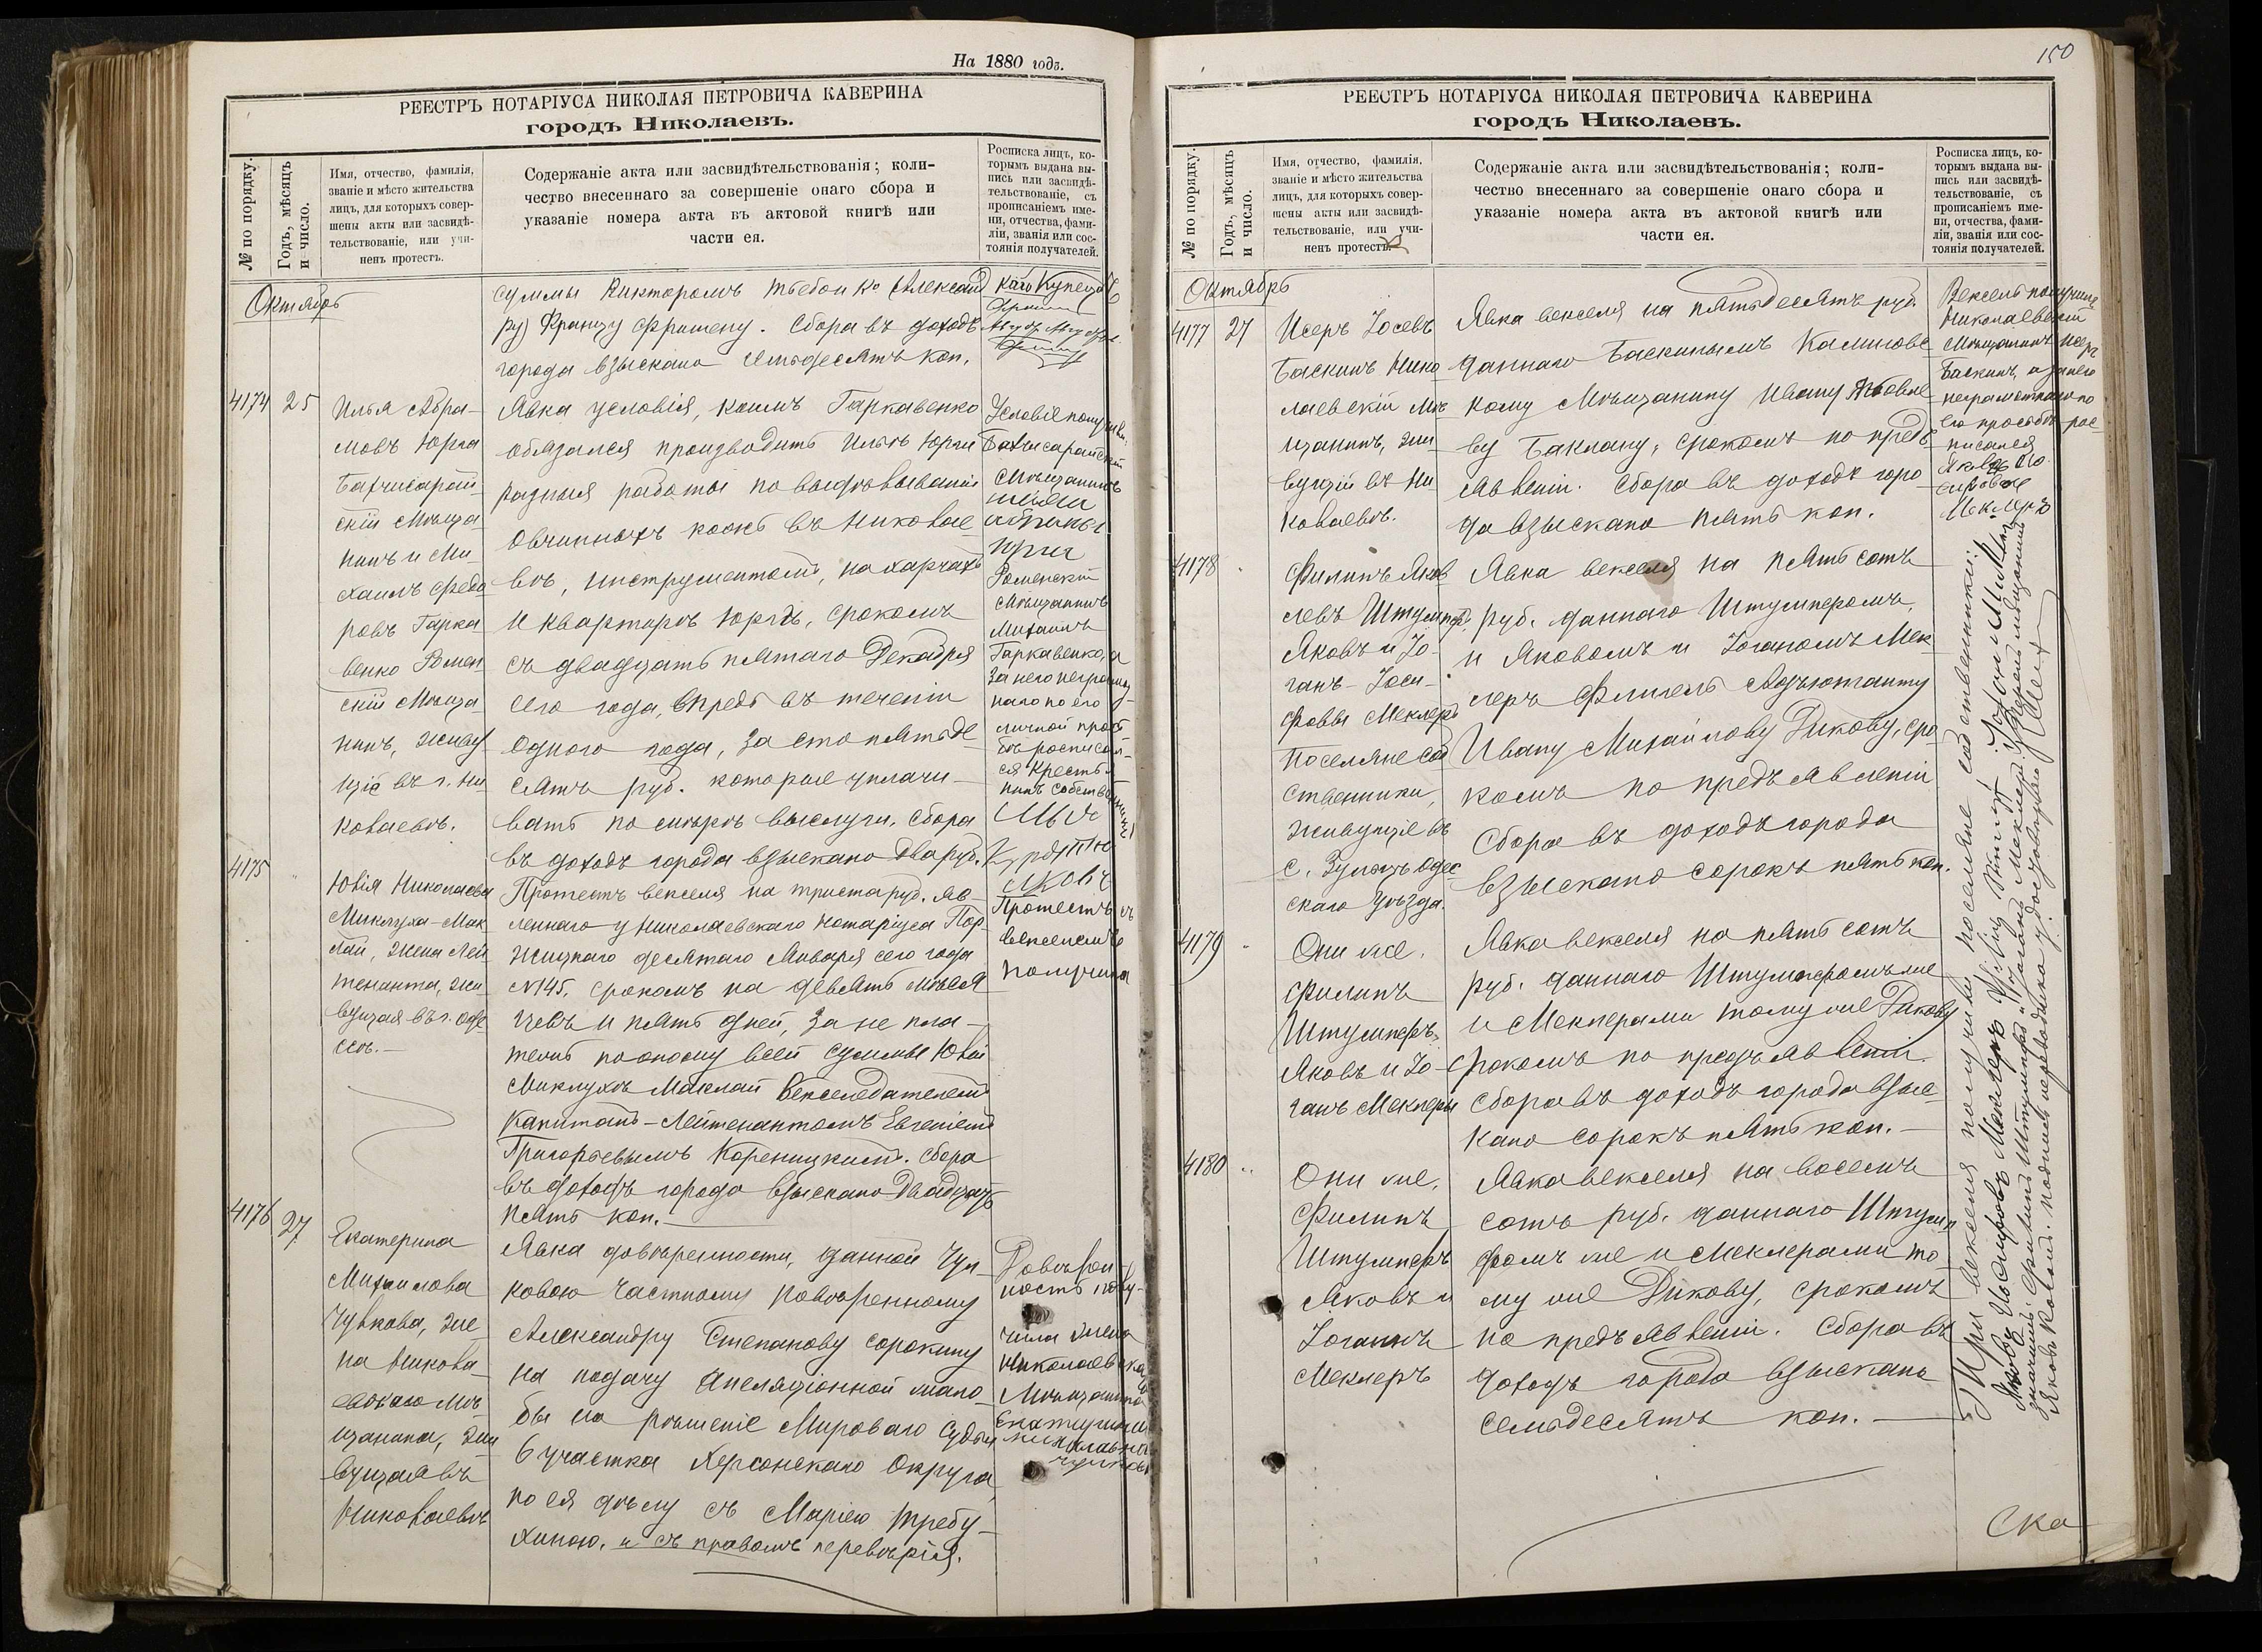 На 1880 годъ.
РЕЕСТРЪ НОТАРІУСА НИКОЛАЯ ПЕТРОВИЧА КАВЕРИНА
городъ Николаевъ.
№ по порядку.
Годъ, мѣсяцъ
и число.
Имя, отчество, фамилія,
званіе и мѣсто жительства
лицъ, для которыхъ совер-
шены акты или засвидѣ-
тельствованіе, или учи-
ненъ протестъ.
Содержаніе акта или засвидѣтельствованія; коли-
чество внесеннаго за совершеніе онаго сбора и
указаніе номера акта въ актовой книгѣ или
части ея.
Росписка лицъ, ко-
торымъ выдана вы-
пись или засвидѣ-
тельствованіе, съ
прописаніемъ име-
ни, отчества, фами-
ліи, званія или сос-
тоянія получателей.
Октябрь
суммы Викторомъ (Александ
ру) Францу Фришену. Сбора въ доходъ
города взыскано Семьдесятъ коп.
каго Купецъ
4174
25
Илья Абра-
мовъ Юрга
Бахчисарай-
скій Мѣща-
нинъ и Ми-
хаилъ Федо
ровъ Гарка
венко Ромен
скій Мѣща
нинъ, живу
щіе въ г. Ни
колаевѣ.
Явка условія, коимъ Гаркавенко
обязался производить Ильѣ Юрги
разныя работы по выдѣлыванію
Овчинныхъ кожъ въ Николае-
вѣ, инструментомъ, на харчахъ
и квартирѣ Юрги, срокомъ
съ двадцать пятаго Декабря
сего года, впредь въ теченіи
одного года, за сто пятьде
сятъ руб. которые уплачи-
вать по мѣрѣ выслуги. Сбора
въ доходъ города взыскано два руб.
Условіе получили:
Бахчисарайскій
Мѣщанинъ
Роменскій
Мѣщанинъ
Михаилъ
Гаркавенко, а
за него неграмот-
наго по его
личной прось
бѣ росписал-
ся Крестья
нинъ Собственникъ
4175
Юлія Николаева
Миклуха-Мак
лай, жена Лей
тенанта, жи-
вущая въ г. Оде
ссѣ.
Протестъ векселя на триста руб. яв-
леннаго у Николаевскаго Нотаріуса Пор-
жицкаго десятаго Января сего года
№ 145, срокомъ на девять мѣся
цевъ и пять дней, за не пла-
тежъ по оному всей суммы Юліи
Миклухѣ Маклай Векселедателемъ
Капитанъ-Лейтенантомъ Евгеніемъ
Григорьевымъ Кореницкимъ. Сбора
въ доходъ города взыскано двадцать
пять коп.
Протестъ съ
векселемъ
получила
4176
27
Екатерина
Михаилова
Чулкова, же-
на Никола-
евскаго Мѣ
щанина, жи
вущая въ
Николаевѣ
Явка довѣренности, данной Чул-
ковою Частному Повѣренному
Александру Степанову Сорокину
на подачу Апеляціонной жало-
бы на рѣшеніе Мироваго Судьи
6 участка Херсонскаго Округа,
по ея дѣлу съ Маріею Требу-
хиною, и съ правомъ перевѣрія.
Довѣрен-
ность полу-
чила жена
Николаевска
Мѣщанина
Екатерина
Чулкова
150
РЕЕСТРЪ НОТАРІУСА НИКОЛАЯ ПЕТРОВИЧА КАВЕРИНА
городъ Николаевъ.
№ по порядку.
Годъ, мѣсяцъ
и число.
Имя, отчество, фамилія,
званіе и мѣсто жительства
лицъ, для которыхъ совер-
шены акты или засвидѣ-
тельствованіе, или учи-
ненъ протестъ.
Содержаніе акта или засвидѣтельствованія; коли-
чество внесеннаго за совершеніе онаго сбора и
указаніе номера акта въ актовой книгѣ или
части ея.
Росписка лицъ, ко-
торымъ выдана вы-
пись или засвидѣ-
тельствованіе, съ
прописаніемъ име-
ни, отчества, фами-
ліи, званія или сос-
тоянія получателей.
Октябрь
4177
27
Исеръ Іосевъ
Баскинъ Нико
лаевскій Мѣ
щанинъ, жи
вущій въ Ни
колаевѣ.
Явка векселя на пятьдесятъ руб.
даннаго Баскинымъ
кому Мѣщанину Ивану
ву Баклану, срокомъ по предъ
явленіи. Сбора въ доходъ горо
да взыскано пять коп.
Вексель получилъ
Николаевскій
Мѣщанинъ Исеръ
Баскинъ, а за него
неграмотнаго по
его просьбѣ рос-
писался
4178
Филипъ Яков
левъ Штумпфъ
Яковъ и Іо-
ганъ-Іоси-
фовы Меклеръ
Поселяне соб
ственники,
живущіе въ
с. Зульцъ Одес
скаго Уѣзда.
Явка векселя на пять сотъ
руб. даннаго Штумперомъ,
и Яковомъ и Іоганомъ Мек
леръ Флигель Адъютанту
Ивану Михайлову Дикову, сро
комъ по предъявленіи
Сбора въ доходъ города
взыскано сорокъ пять коп.
4179
Они же.
Филипъ
Штумперъ,
Яковъ и Іо-
ганъ Меклеры
Явка векселя на пять сотъ
руб. даннаго Штумпфомъ же
и Меклерами тому же Дикову
срокомъ по предъявленіи.
Сбора въ доходъ города взыс-
кано сорокъ пять коп.
4180
Они же.
Филипъ
Штумперъ
Яковъ и
Іоганнъ
Меклеръ
Явка векселя на восемь
сотъ руб. даннаго Штумп
фомъ же и Меклерами то-
му же Дикову, срокомъ
по предъявленіи. Сбора въ
доходъ города взыскано
семьдесятъ коп.
Три векселя получили поселяне собственники: